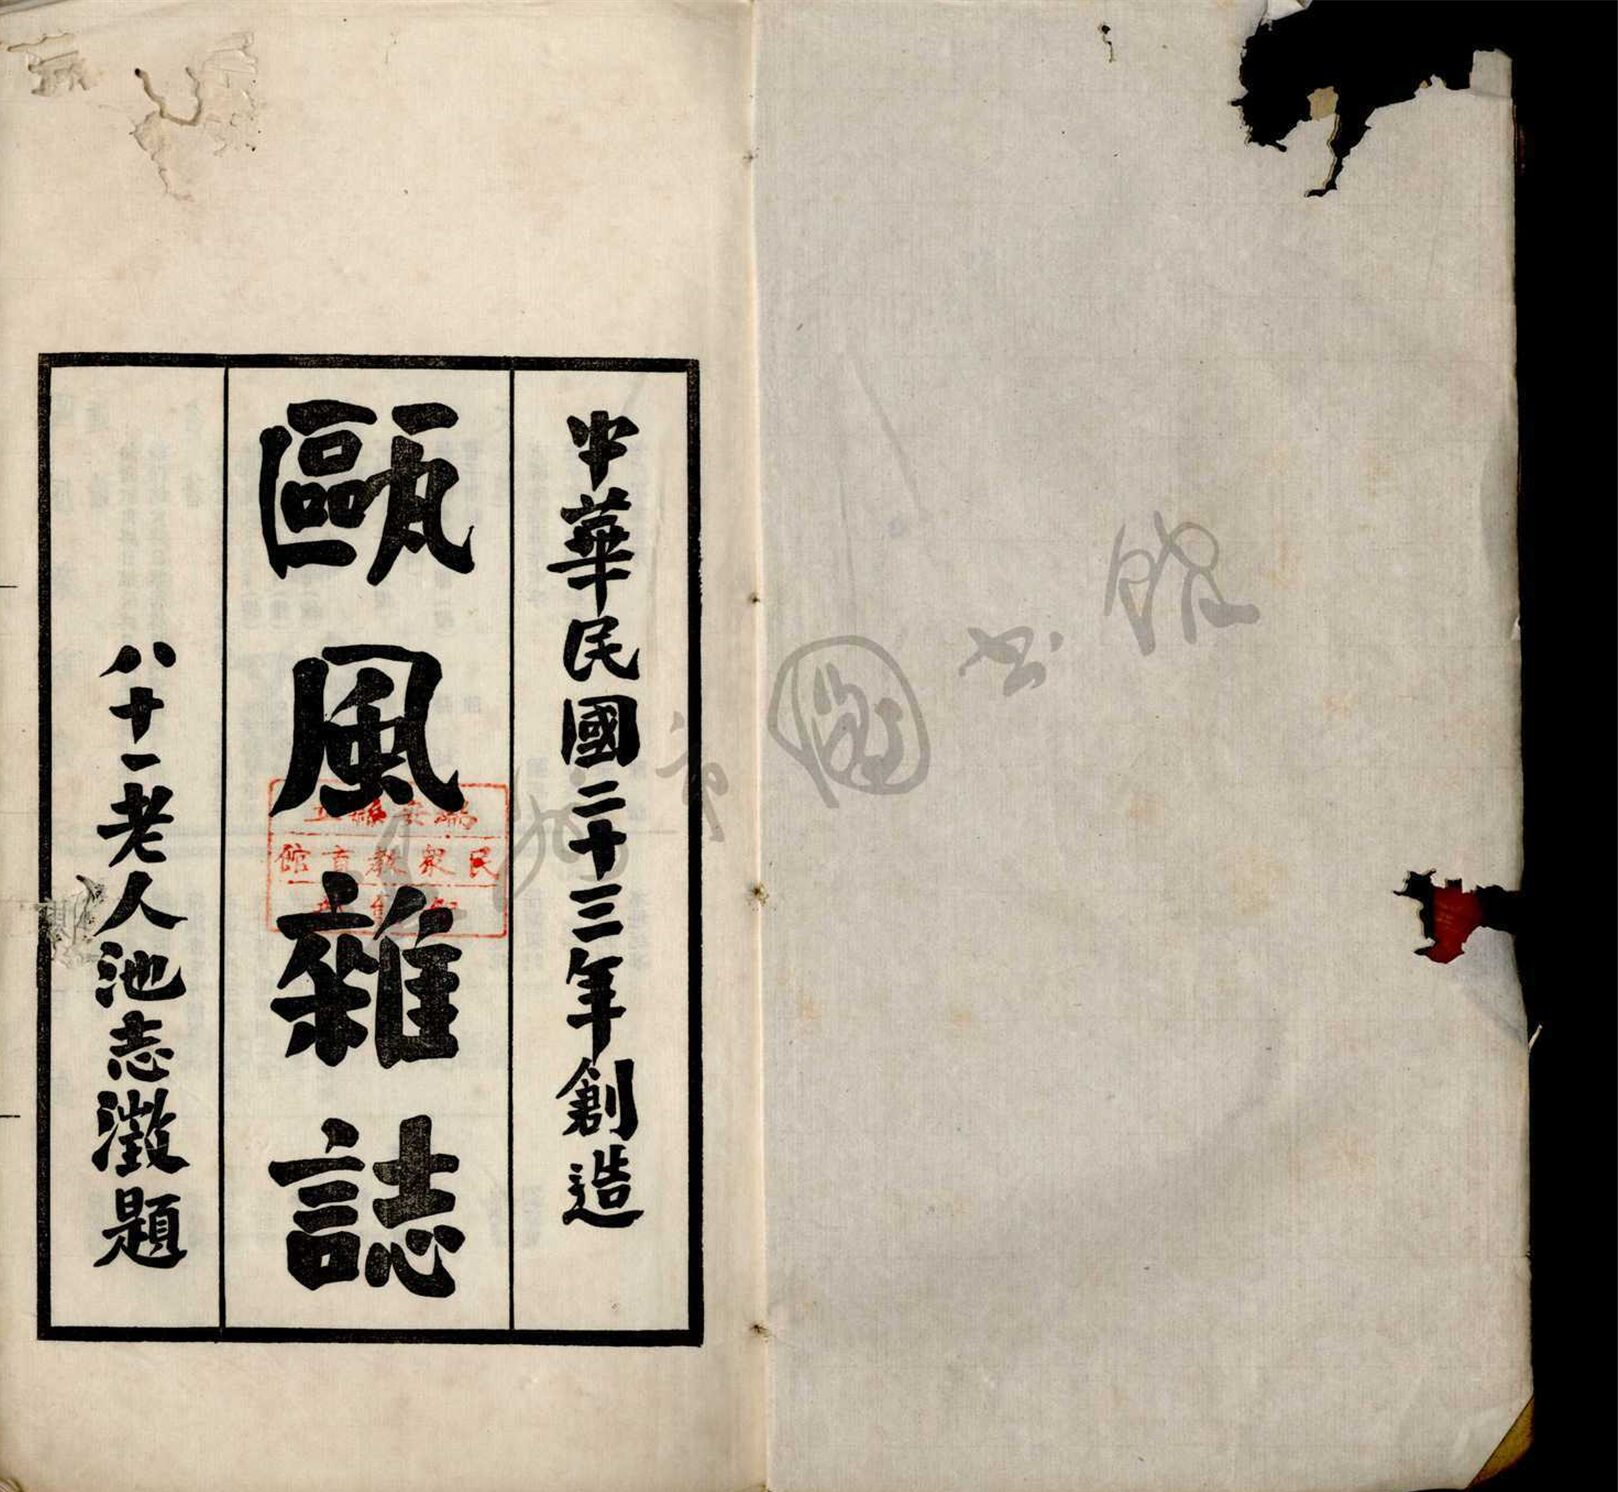 中華民國二十三年創造
甌風雜誌
八十一老人池志澂題
民眾教育館